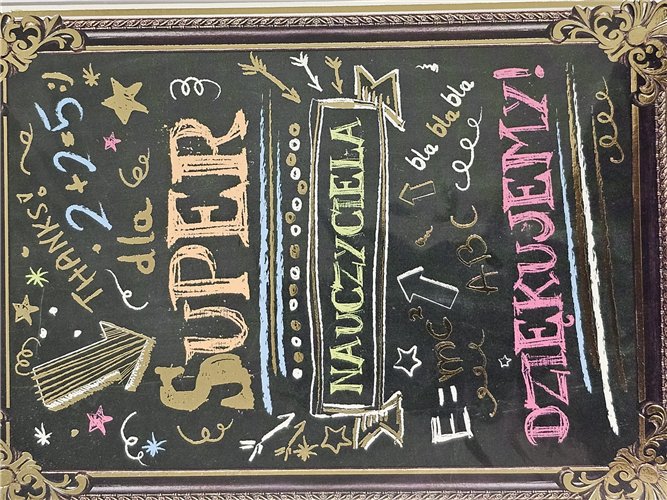 THANKS!
2+2=5:)
dla
SUPER
NAUCZYCIELA
bla bla bla
E=mc²
ABC
DZIĘKUJEMY!